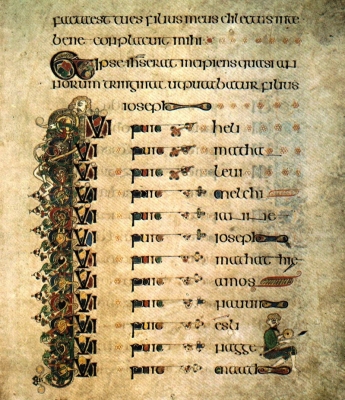 factaest tues filius meus dilectus inte
bene conplacuit mihi
Et ipse ihs erat incipiens quasi an
norum triginta ut putabatur filius
ioseph
QUI fuit heli
QUI fuit matha
QUI fuit leui
QUI fuit melchi
QUI fuit
QUI fuit ioseph
QUI fuit mathathie
QUI fuit amos
QUI fuit nauum
QUI fuit esli
QUI fuit nagge
QUI fuit maath